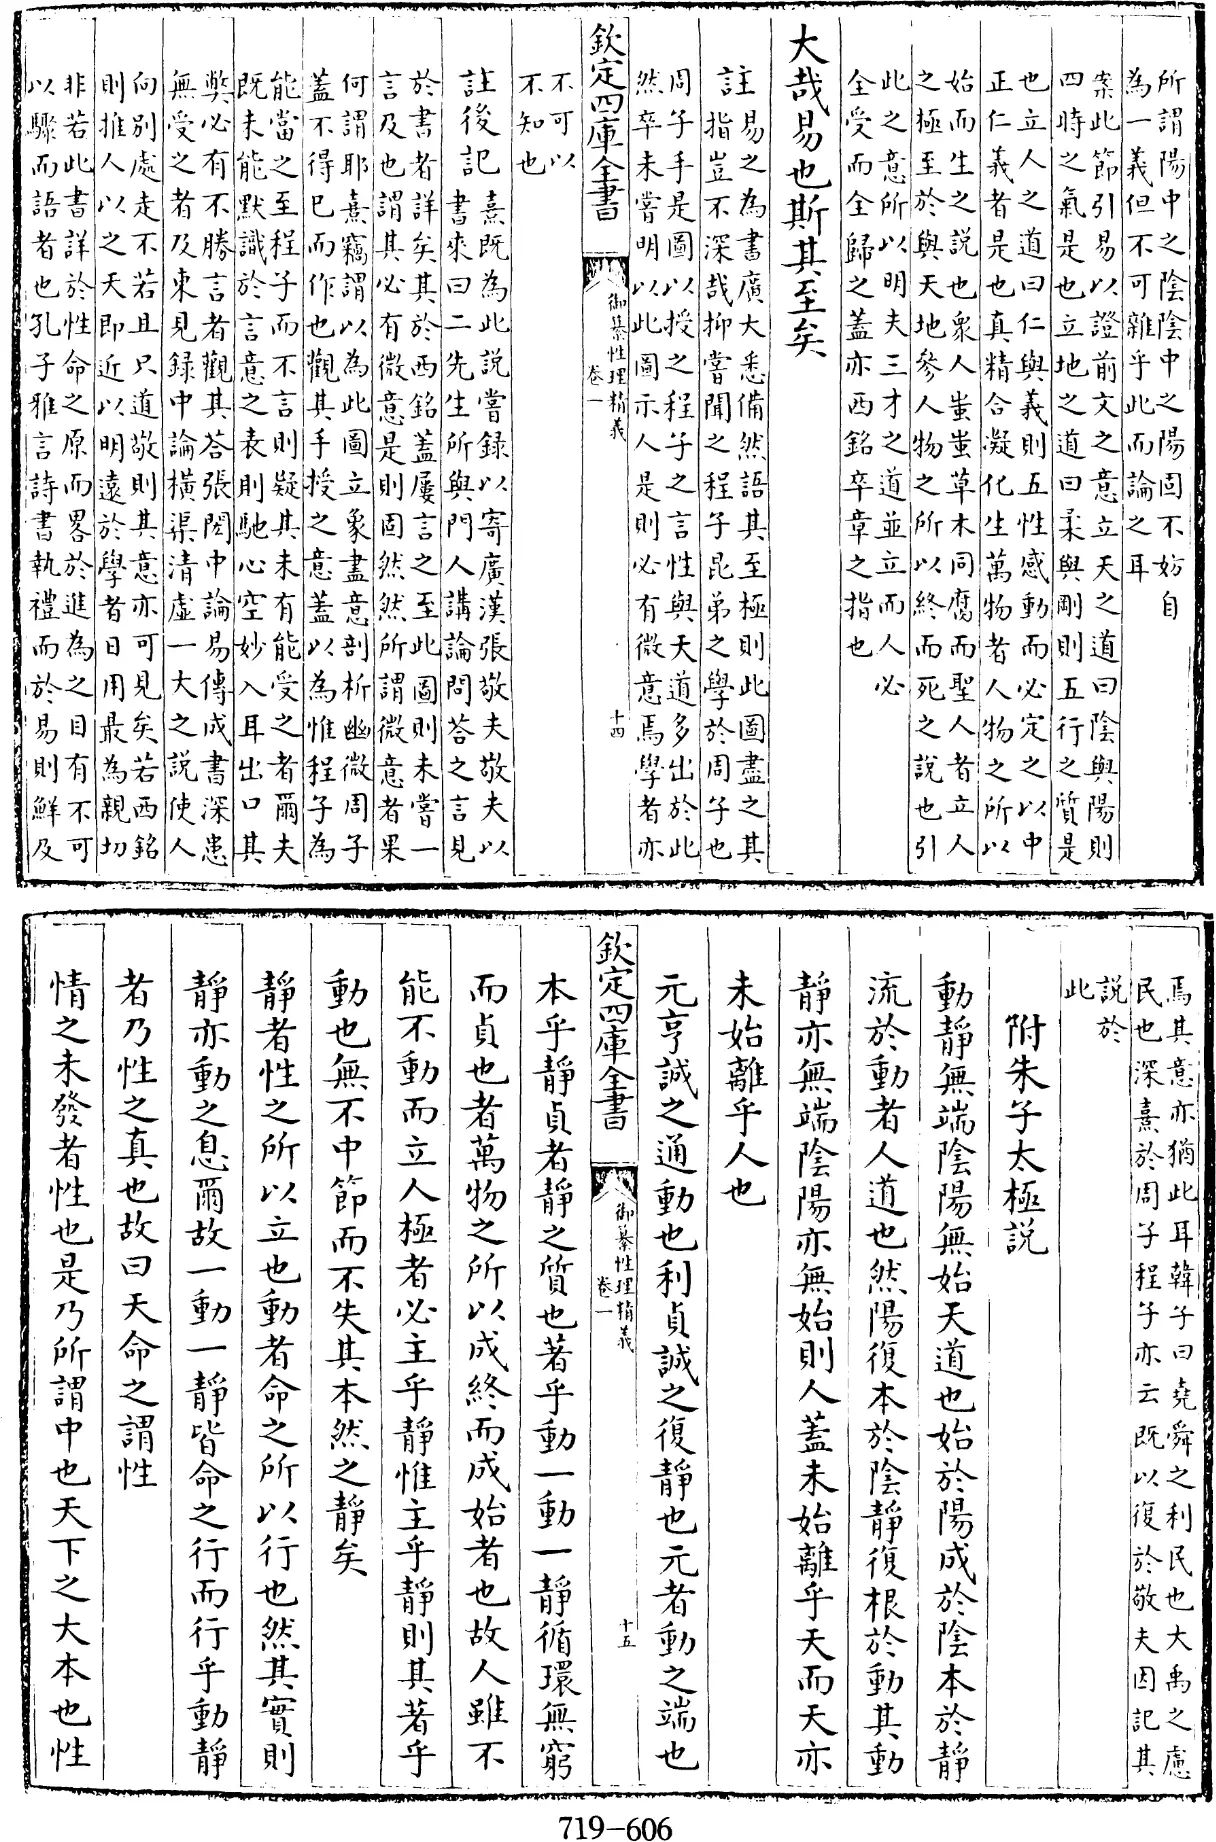 所謂陽中之陰陰中之陽固不妨自
為一義但不可雜乎此而論之耳
案此節引易以證前文之意立天之道曰陰與陽則
四時之氣是也立地之道曰柔與剛則五行之質是
也立人之道曰仁與義則五性感動而必定之以中
正仁義者是也真精合凝化生萬物者人物之所以
始而生之説也衆人蚩蚩草木同腐而聖人者立人
之極至於與天地參人物之所以終而死之説也引
此之意所以明夫三才之道並立而人必
全受而全歸之蓋亦西銘卒章之指也
大哉易也斯其至矣
註易之為書廣大悉備然語其至極則此圖盡之其
指豈不深哉抑嘗聞之程子昆弟之學於周子也
周子手是圖以授之程子之言性與天道多出於此
然卒未嘗明以此圖示人是則必有微意焉學者亦
欽定四庫全書
御纂性理精義
卷一
十四
不可以
不知也
註後記熹既為此説嘗録以寄廣漢張敬夫敬夫以
書來曰二先生所與門人講論問答之言見
於書者詳矣其於西銘蓋屢言之至此圖則未嘗一
言及也謂其必有微意是則固然然所謂微意者果
何謂耶熹竊謂以為此圖立象盡意剖析幽微周子
蓋不得已而作也觀其手授之意蓋以為惟程子為
能當之至程子而不言則疑其未有能受之者爾夫
既未能默識於言意之表則馳心空妙入耳出口其
弊必有不勝言者觀其答張閎中論易傳成書深患
無受之者及東見録中論橫渠清虛一大之説使人
向別處走不若且只道敬則其意亦可見矣若西銘
則推人以之天即近以明遠於學者日用最為親切
非若此書詳於性命之原而畧於進為之目有不可
以驟而語者也孔子雅言詩書執禮而於易則鮮及
焉其意亦猶此耳韓子曰堯舜之利民也大禹之慮
民也深熹於周子程子亦云既以復於敬夫因記其
説於
此
附朱子太極説
動靜無端陰陽無始天道也始於陽成於陰本於靜
流於動者人道也然陽復本於陰靜復根於動其動
靜亦無端陰陽亦無始則人蓋未始離乎天而天亦
未始離乎人也
元亨誠之通動也利貞誠之復靜也元者動之端也
欽定四庫全書
御纂性理精義
卷一
十五
本乎靜貞者靜之質也著乎動一動一靜循環無窮
而貞也者萬物之所以成終而成始者也故人雖不
能不動而立人極者必主乎靜惟主乎靜則其著乎
動也無不中節而不失其本然之靜矣
靜者性之所以立也動者命之所以行也然其實則
靜亦動之息爾故一動一靜皆命之行而行乎動靜
者乃性之真也故曰天命之謂性
情之未發者性也是乃所謂中也天下之大本也性
719-606